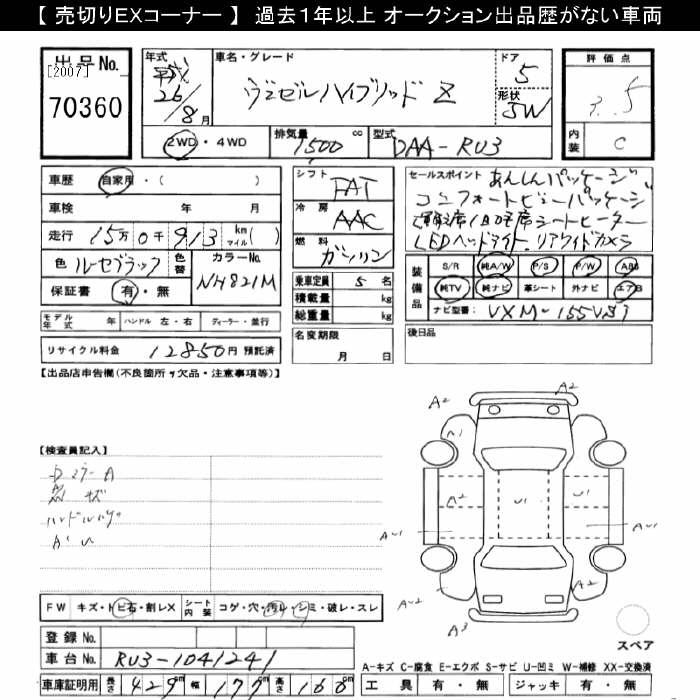 【 売切りEXコーナー 】 過去1年以上 オークション出品歴がない車両
出品No.
[2007]
70360
年式
26/8月
車名・グレード
ヴェゼルハイブリッド Z
ドア
5
形状
5W
評価点
3.5
内装
C
2WD・4WD
排気量
1500 cc
型式
DAA-RU3
車歴 自家用・( )
車検 年 月
走行 15万0千913 km マイル( )
色 ルーセブラック
色替
カラーNo.
NH821M
保証書 有・無
シフト
FAT
冷房
AAC
燃料
ガソリン
乗車定員 5 名
積載量 kg
総重量 kg
セールスポイント あんしんパッケージ
コンフォートビューパッケージ
運転席/助手席シートヒーター
LEDヘッドライト、リアワイドカメラ
装備品
S/R 純A/W P/S P/W ABS
純TV 純ナビ 革シート 外ナビ エアB
ナビ型番: VXM-155VSi
モデル年式 年 ハンドル 左・右 ディーラー・並行
リサイクル料金 12850円 預託済
名変期限
月 日
後日品
【出品店申告欄(不良箇所・欠品・注意事項等)】
【検査員記入】
ハンドル
A2
A2
A1
A2
U1
A-U1
A-U1
A-U2
A2
A3
FW キズ・トビ石・割レX シート内装 コゲ・穴・汚レ・シミ・破レ・スレ
登録No.
車台No. RU3-1041241
車庫証明用 長さ 429cm 幅 177cm 高さ 160cm
スペア
A-キズ C-腐食 E-エクボ S-サビ U-凹ミ W-補修 XX-交換済
工具 有・無 ジャッキ 有・無